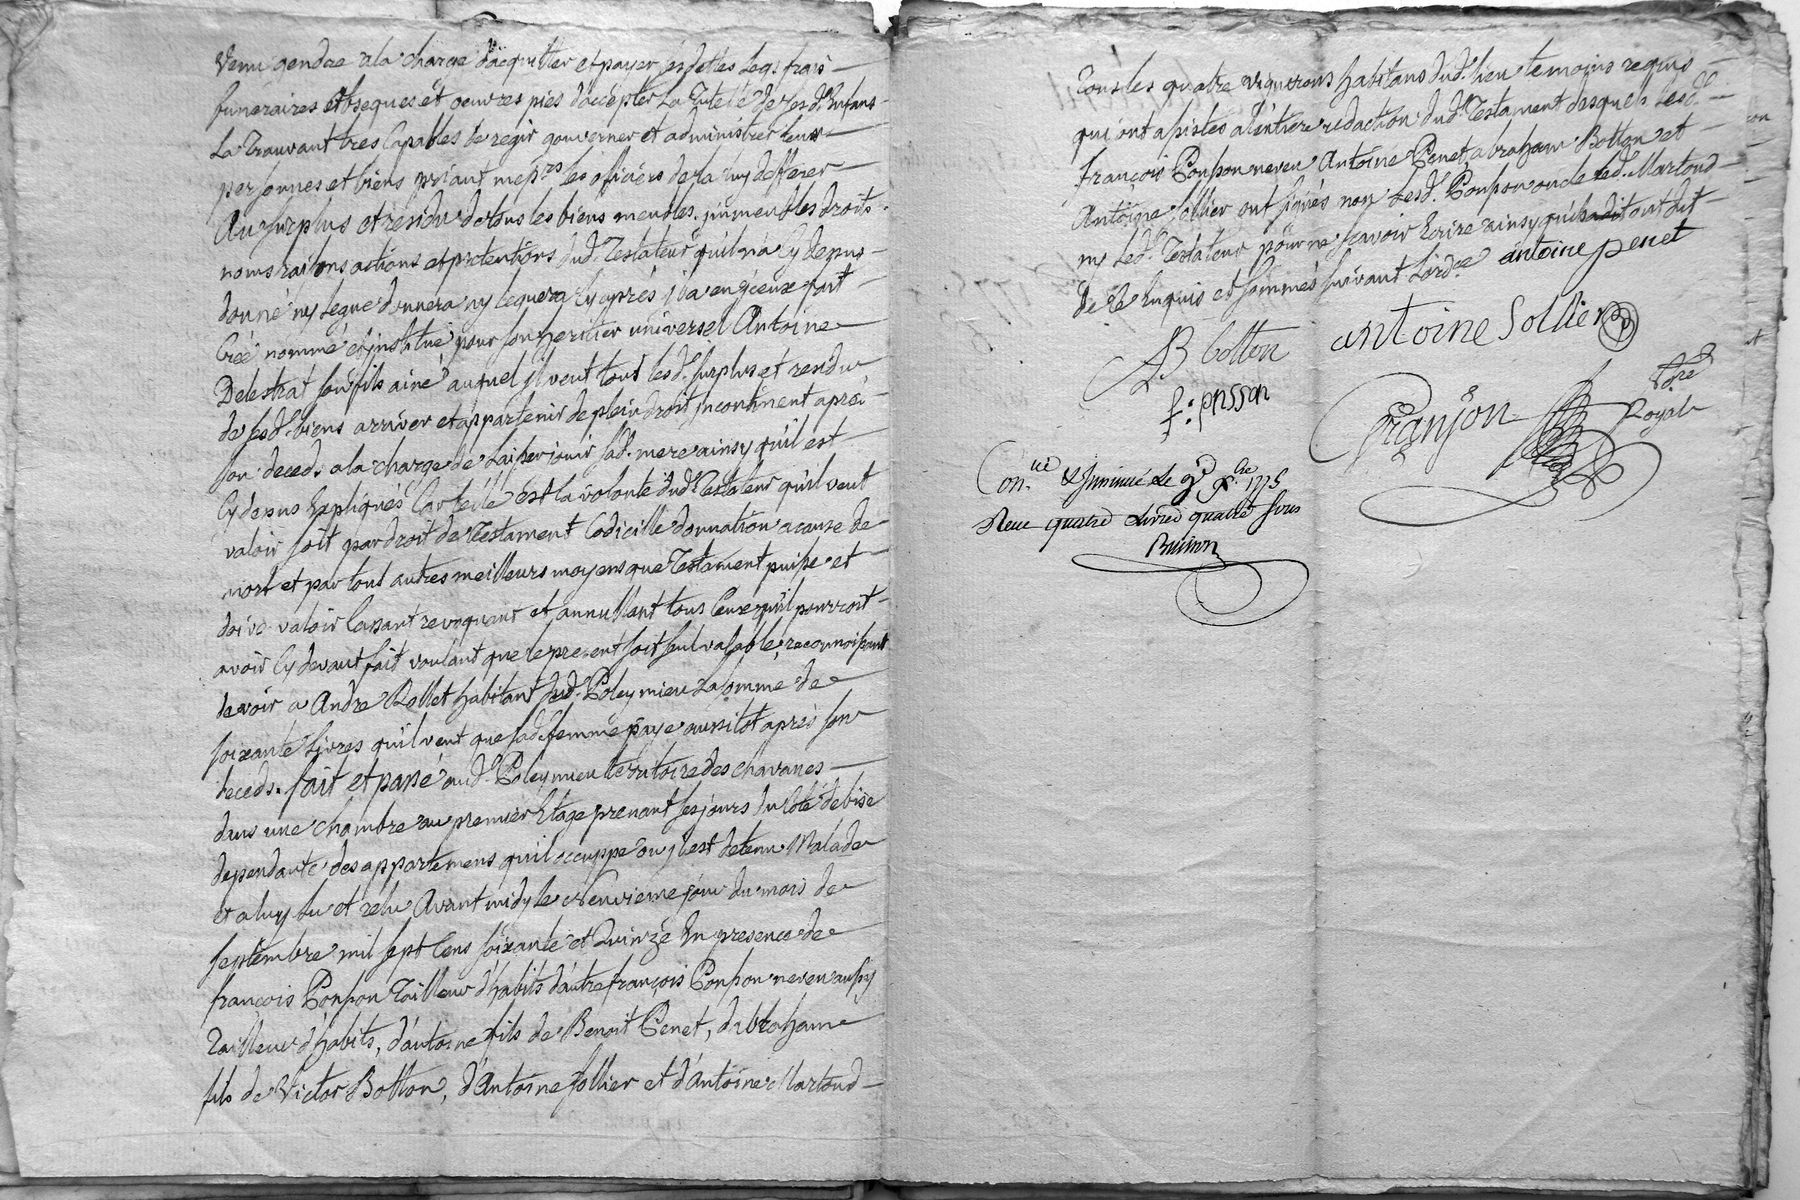 venu gendre a la charge d'acquitter et payer ses dettes legs frais
funeraires obseques et oeuvres pies d'accepter la Tutelle de ses d. Enfans
La Trouvant tres Capables de regir gouverner et administrer leurs
personnes et biens priant mes rs les officiers de la luy defferer
Au surplus et residu de tous les biens meubles, jmmeubles droits
noms raisons actions et pretentions dud. Testateur qu'il n'a Cy dessus
donné ny legué donnera ny leguera Cy après, il a en jceux fait
Créé nommé et jnstitué pour son heritier universel Antoine
Delestrat son fils ainé auquel jl veut tout lesd. surplus et residu
de sesd. biens arriver et appartenir de plein droit jncontinent après
son deced. a la charge de laisser jouir sad. mere ainsy qu'il est
Cy dessus Expliqués Car telle est la volonté dud. Testateur qu'il veut
valoir soit par droit de Testament Codicille donnation a cause de
mort et par tout autres meilleurs moyens que Testament puisse et
doive valoir Cassant revoquant et annullant tous Ceux qu'il pourroit
avoir Cy devant fait voulant que le present soit seul valable, reconnoissant
devoir a Andre Rollet habitant dud. Poleymieu la somme de
soixante Livres qu'il veut que sad. femme paye aussitot après son
deceds. fait et passé aud. Poleymieu territoire des chavanes
dans une chambre au premier Etage prenant ses jours du Coté de bise
dependante des appartemens qu'il occuppe ou jl est detenu Malade
et a luy lu et relu Avant midy le Neuvieme jour du mois de
septembre mil sept Cens soixante et Quinze En presence de
françois Ponson Tailleur d'habits d'autre françois Ponson neveu aussy
Tailleur d'habits, d'antoine fils de Benoit Penet, d'abraham
fils de Victor Botton, d'Antoine Sollier et d'Antoine Martoud
Tous les quatre vignerons habitans dud. lieu temoins requis
qui ont assistes a l'entiere redaction dud. Testament desquels lesd.
françois Ponson neveu Antoine Penet abraham Botton et
Antoine Sollier ont signés non lesd. Ponson oncle led. Martoud
ny led. Testateur pour ne sçavoir Ecrire ainsy qu'ils ont dit
de ce Enquis et sommés suivant L'ord.ce antoine penet
AB botton antoine Sollier
f: ponson
Granjon No.re Royal
Con.lé & Jnsinué le 1775
Reçu quatre livres quatre sous
Buisson